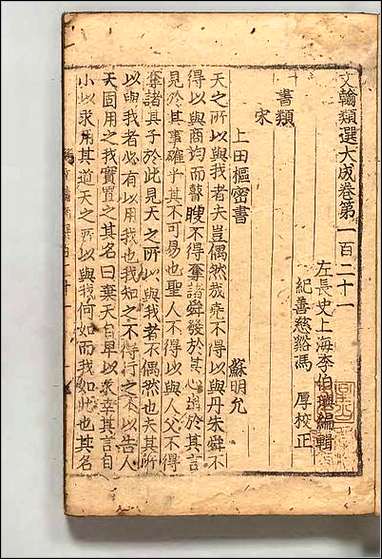 文翰類選大成卷第一百二十一
左長史上海李伯璵編輯
紀善慈谿馮　厚校正
書類
宋
上田樞密書　蘇明允
天之所以與我者夫豈偶然哉堯不得以與丹朱舜不
得以與商均而瞽瞍不得奪諸舜發於其心出於其言
見於其事確乎其不可易也聖人不得以與人父不得
奪諸其子於此見天之所以與我者不偶然也夫其所
以與我者必有以用我也我知之不得行之不以告人
天固用之我實置之其名曰棄天自卑以求幸其言自
小以求用其道天之所以與我何如而我如此也其名